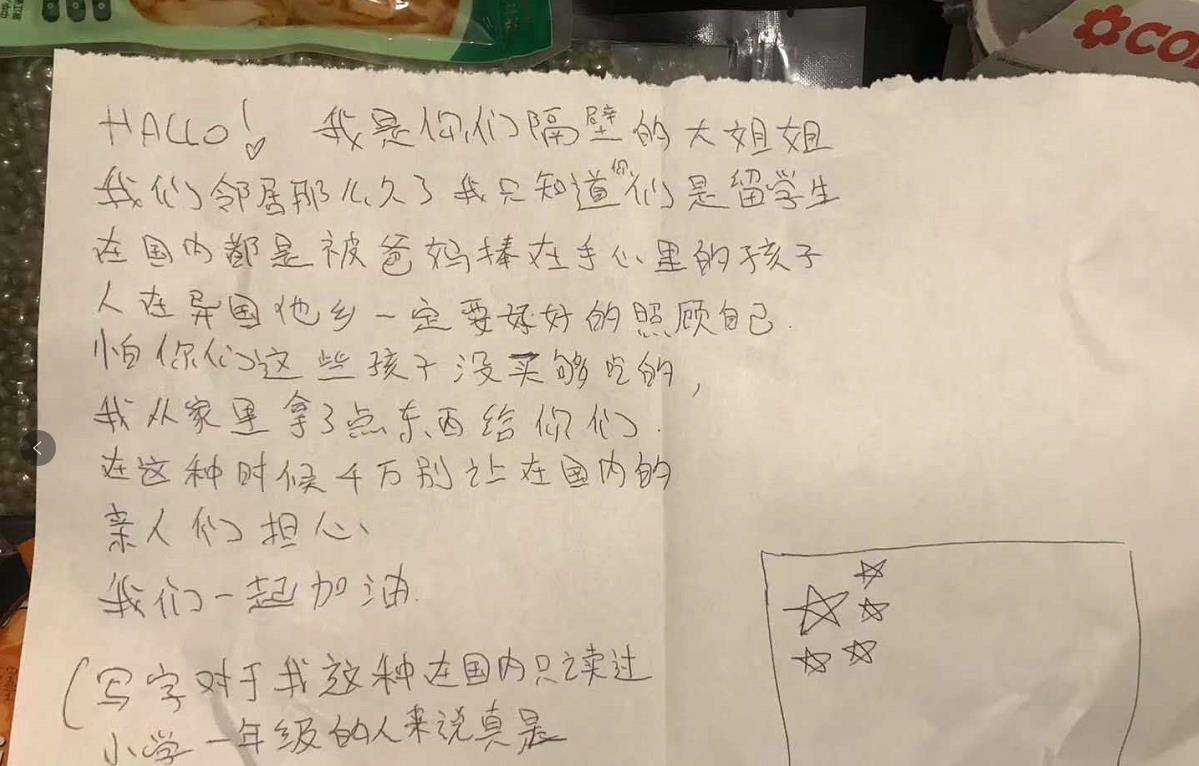 HALLO! 我是你们隔壁的大姐姐
我们邻居那么久了我只知道你们是留学生
在国内都是被爸妈捧在手心里的孩子
人在异国他乡一定要好好的照顾自己.
怕你们这些孩子没买够吃的,
我从家里拿了点东西给你们.
在这种时候千万别让在国内的
亲人们担心、
我们一起加油.
(写字对于我这种在国内只读过
小学一年级的人来说真是